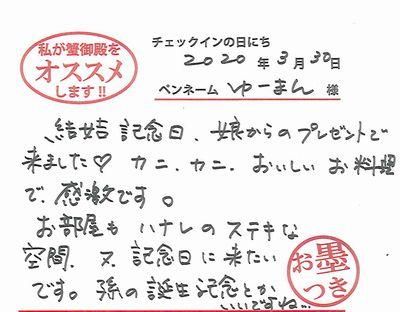 私が蟹御殿を
オススメ
します!!
チェックインの日にち
2020年3月30日
ペンネーム ゆーまん 様
結婚記念日、娘からのプレゼントで
来ました♡ カニ、カニ、おいしいお料理
で、感激です。
お部屋もハナレのステキな
空間、又、記念日に来たい
です。孫の誕生記念とか
いいですね…
お墨
つき